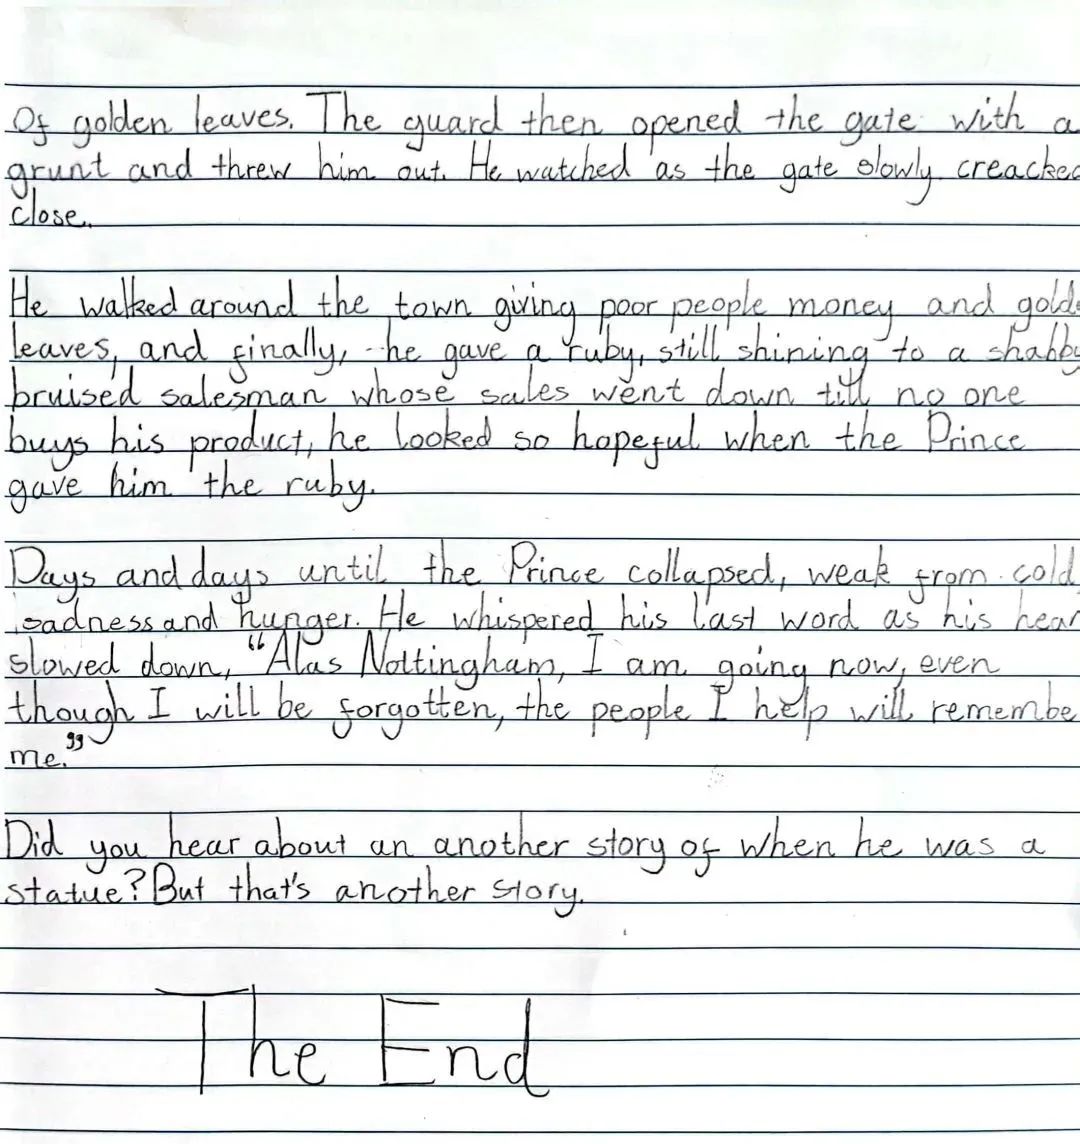 Of golden leaves. The guard then opened the gate with a
grunt and threw him out. He watched as the gate slowly creacked
close.
He walked around the town giving poor people money and golde
leaves, and finally, he gave a ruby, still shining to a shabby
bruised salesman whose sales went down till no one
buys his product, he looked so hopeful when the Prince
gave him the ruby.
Days and days until the Prince collapsed, weak from cold,
sadness and hunger. He whispered his last word as his hear
slowed down, "Alas Nottingham, I am going now, even
though I will be forgotten, the people I help will remembe
me."
Did you hear about an another story of when he was a
statue? But that's another story.
The End